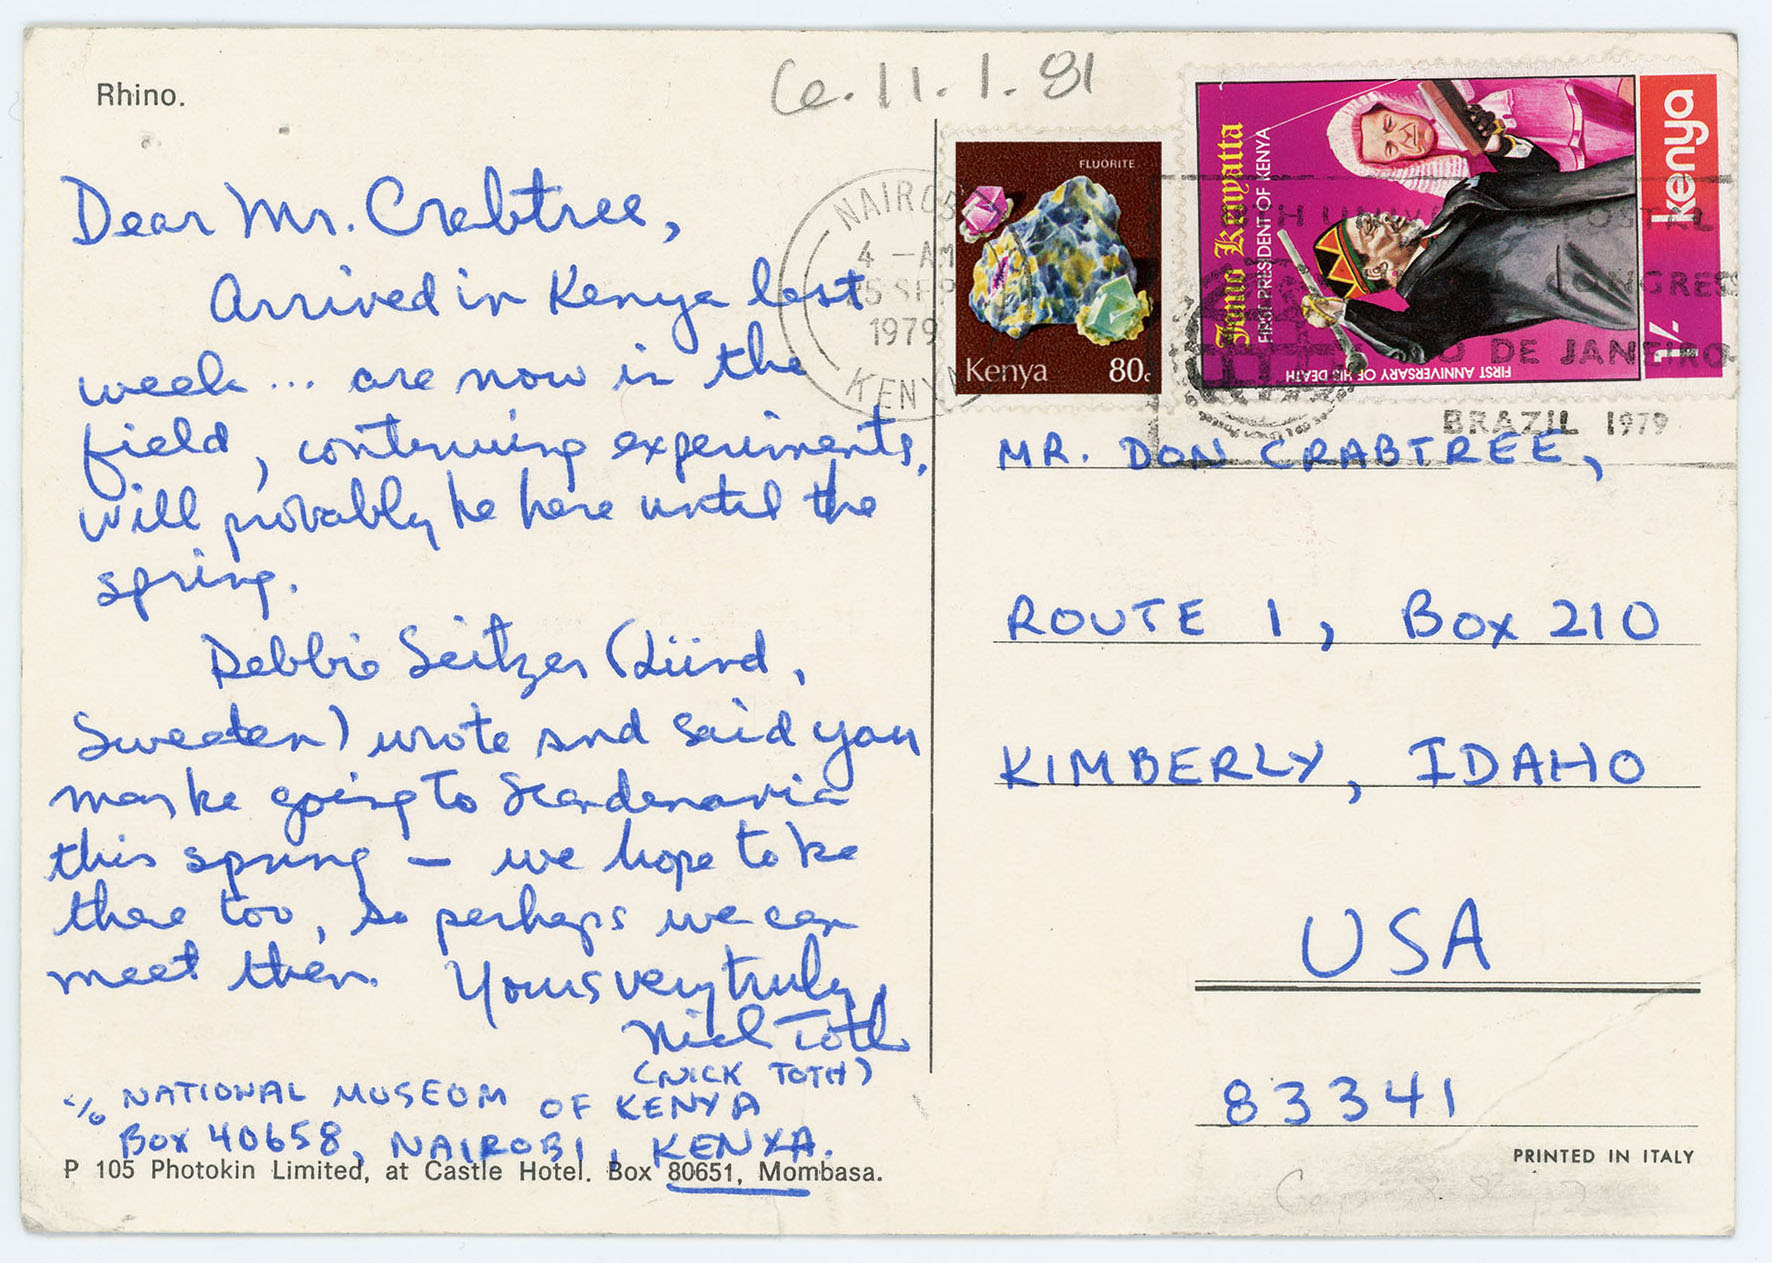 Rhino.
6.11.1.81
Dear Mr. Crabtree,
Arrived in Kenya last
week... are now in the
field, continuing experiments,
will probably be here until the
spring.
Debbie Seitzer (Lünd,
Sweden) wrote and said you
may be going to Scandanavia
this spring — we hope to be
there too, so perhaps we can
meet then. Yours very truly,
Nick Toth
(NICK TOTH)
c/o NATIONAL MUSEUM OF KENYA
BOX 40658, NAIROBI, KENYA.
P 105 Photokin Limited, at Castle Hotel. Box 80651, Mombasa.
NAIROBI
4 - AM
SEP
1979
KENYA
FLUORITE
Kenya 80c
Jomo Kenyatta
FIRST PRESIDENT OF KENYA
FIRST ANNIVERSARY OF HIS DEATH
kenya
1/-
POSTAL
CONGRESS
RIO DE JANEIRO
BRAZIL 1979
MR. DON CRABTREE,
ROUTE 1, Box 210
KIMBERLY, IDAHO
USA
83341
PRINTED IN ITALY